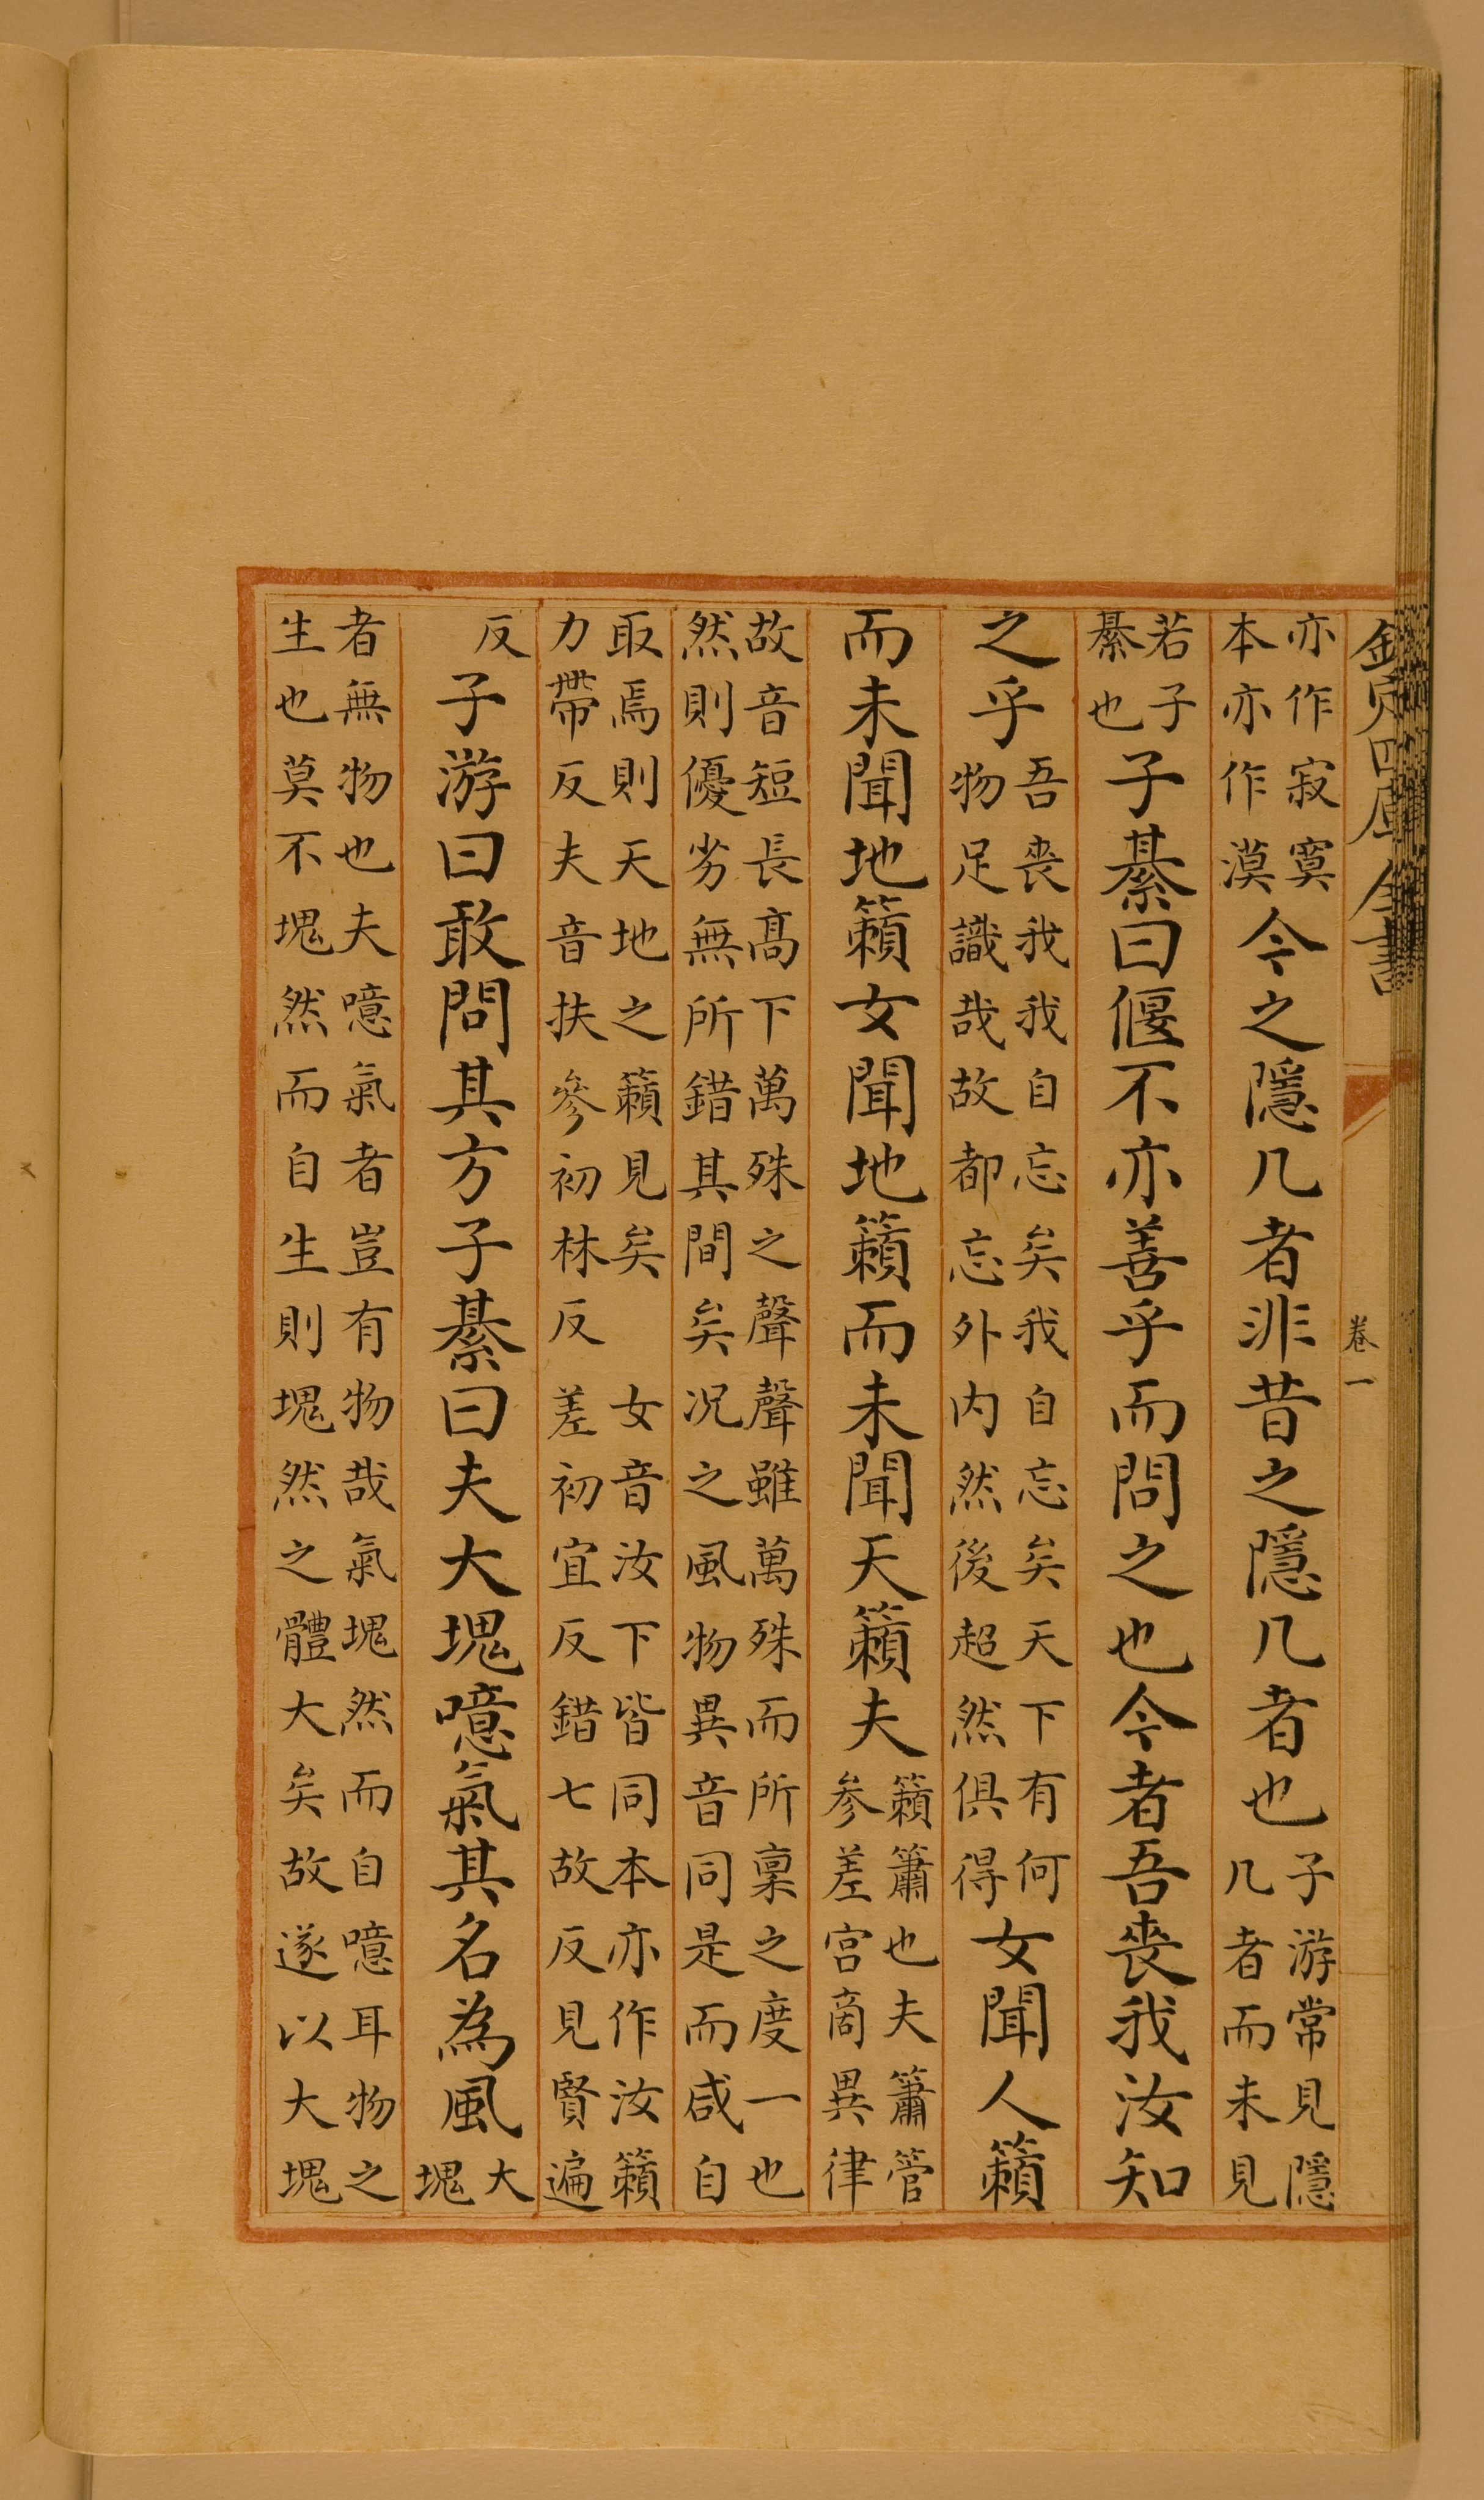 欽定四庫全書
卷一
亦作寂寞
本亦作漠
今之隱几者非昔之隱几者也
子游常見隱
几者而未見
若子
綦也
子綦曰偃不亦善乎而問之也今者吾喪我汝知
之乎
吾喪我我自忘矣我自忘矣天下有何
物足識哉故都忘外内然後超然俱得
女聞人籟
而未聞地籟女聞地籟而未聞天籟夫
籟簫也夫簫管
参差宫商異律
故音短長髙下萬殊之聲聲雖萬殊而所稟之度一也
然則優劣無所錯其間矣况之風物異音同是而咸自
取焉則天地之籟見矣 女音汝下皆同本亦作汝籟
力帶反夫音扶參初林反 差初宜反錯七故反見賢遍
反
子游曰敢問其方子綦曰夫大塊噫氣其名為風
大
塊
者無物也夫噫氣者豈有物哉氣塊然而自噫耳物之
生也莫不塊然而自生則塊然之體大矣故遂以大塊